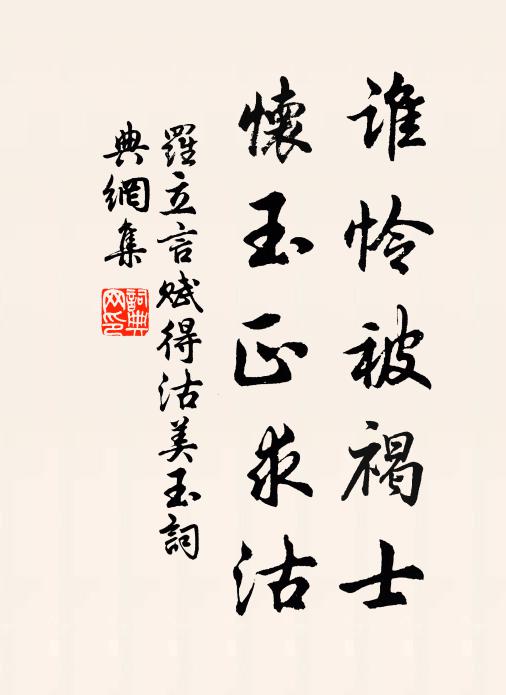 谁怜被褐士
懷玉正求沽
羅立言賦得沽美玉詞
典網集
詞典網印